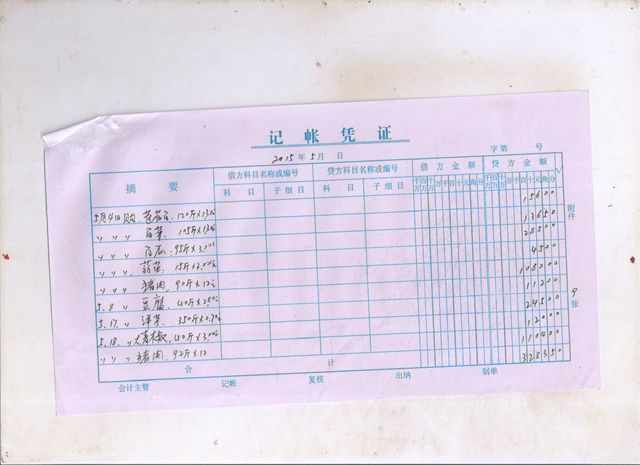 记帐凭证
2015年5月 日 字第 号
摘要 借方科目名称或编号 贷方科目名称或编号 借方金额 贷方金额 √
科目 子细目 科目 子细目 千百十万千百十元角分 千百十万千百十元角分
5月4日购 莲花白 120斤×1.30 15600
〃 〃 〃 白菜 105斤×1.30 13650
〃 〃 〃 95斤×3.00 28500
〃 〃 〃 蒜苗 15斤×3.00 4500
〃 〃 〃 猪肉 90斤×12 108000
5.8 〃 豆腐 40斤×2.80 11200
5.17 〃 洋芋 350斤×0.70 24500
5.18 〃 大青椒 40斤×3.00 12000
〃 〃 〃 猪肉 92斤×12 110400
合计 328350
附件 9 张
会计主管 记帐 复核 出纳 制单